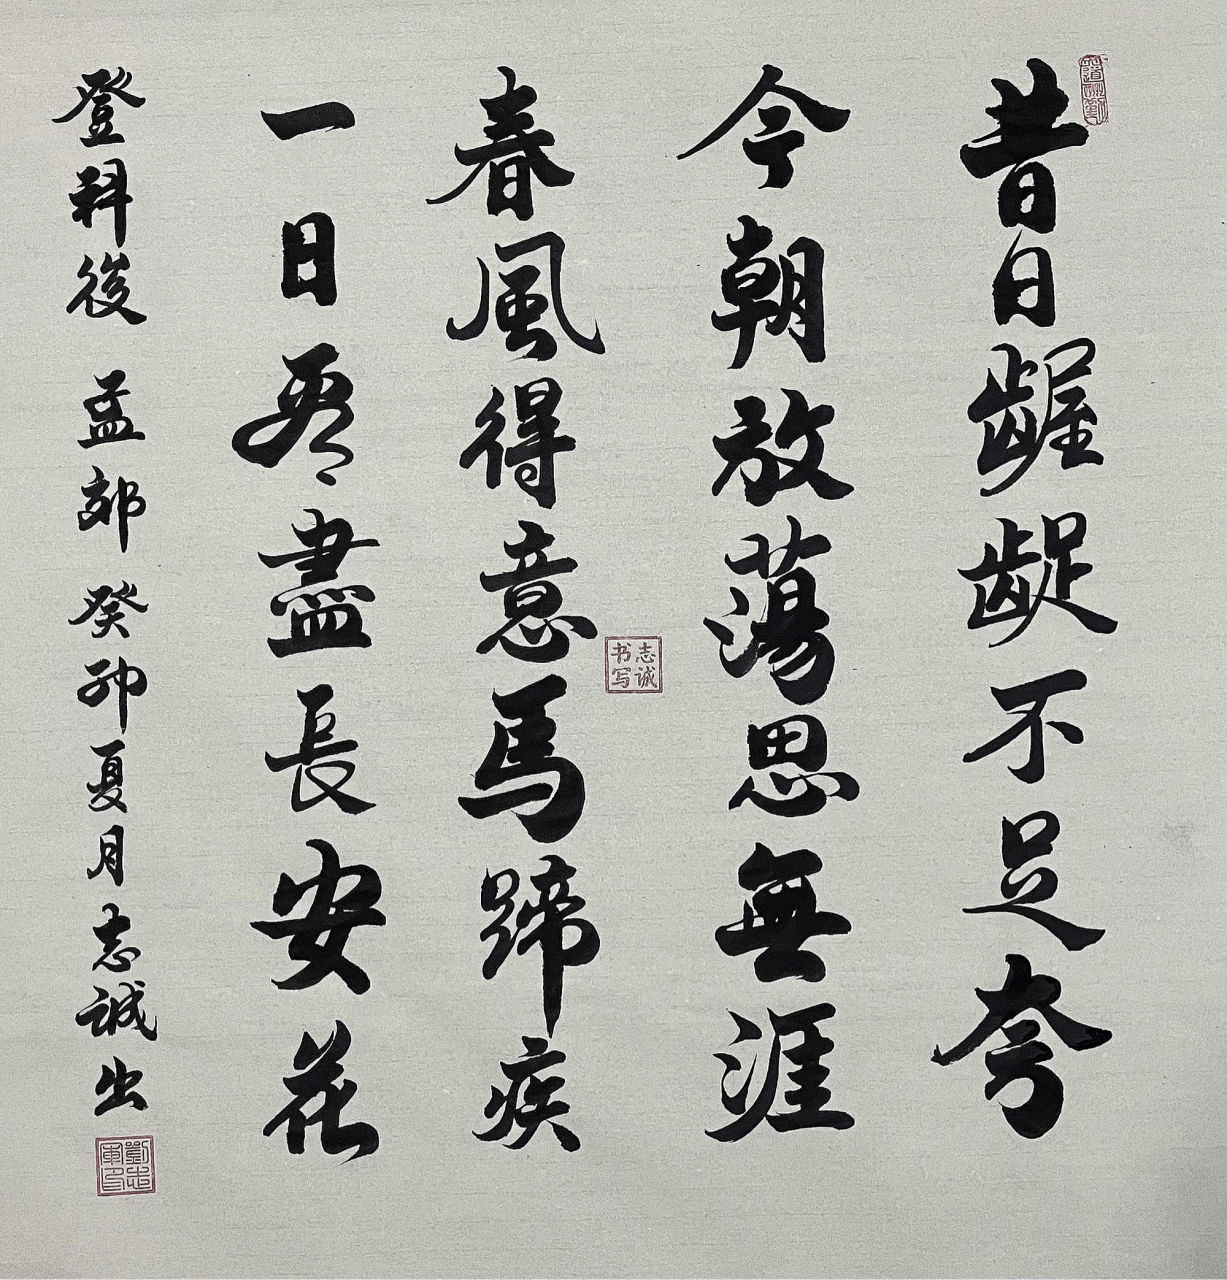 天道酬勤
昔日齷齪不足夸
今朝放蕩思無涯
春風得意馬蹄疾
一日看盡長安花
登科後 孟郊 癸卯夏月志誠出
志诚书写
劉志軍印